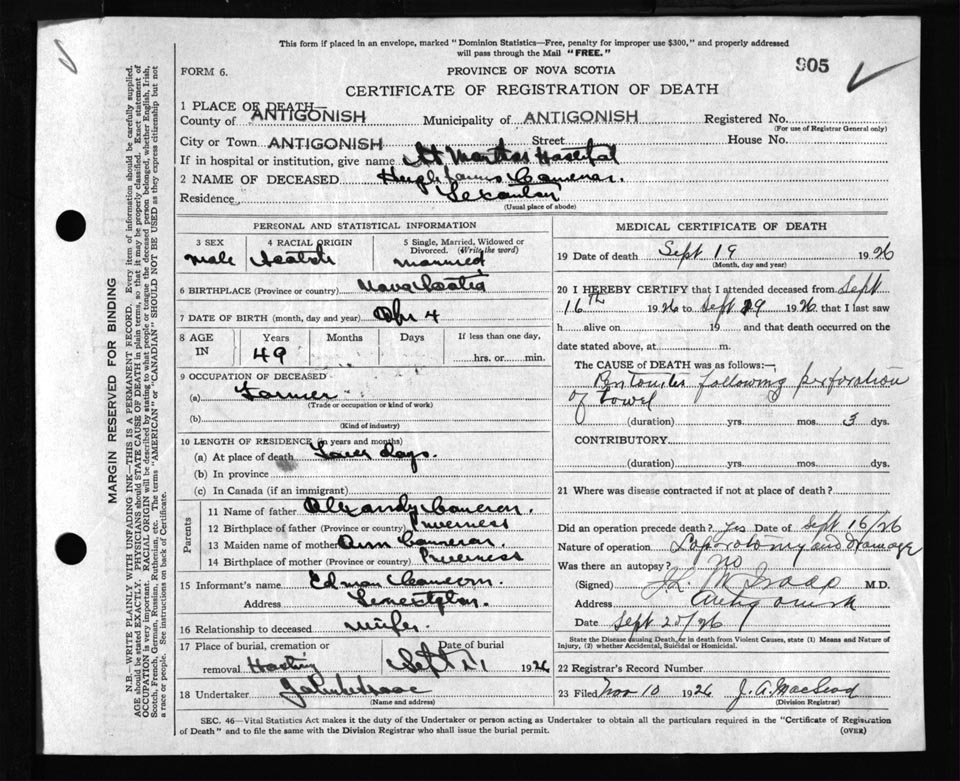 This form if placed in an envelope, marked "Dominion Statistics—Free, penalty for improper use $300," and properly addressed
will pass through the Mail "FREE."
FORM 6.
PROVINCE OF NOVA SCOTIA
905
CERTIFICATE OF REGISTRATION OF DEATH
1 PLACE OF DEATH—
County of ANTIGONISH Municipality of ANTIGONISH Registered No.
(For use of Registrar General only)
City or Town ANTIGONISH Street House No.
If in hospital or institution, give name St Marthas Hospital
2 NAME OF DECEASED Hugh James Cameron.
Residence
(Usual place of abode)
PERSONAL AND STATISTICAL INFORMATION
3 SEX 4 RACIAL ORIGIN 5 Single, Married, Widowed or
Divorced. (Write the word)
Male Scotch married
6 BIRTHPLACE (Province or country) Nova Scotia
7 DATE OF BIRTH (month, day and year) Apr 4
8 AGE Years Months Days If less than one day,
IN 49 hrs. or min.
9 OCCUPATION OF DECEASED
(a) Farmer
(Trade or occupation or kind of work)
(b)
(Kind of industry)
10 LENGTH OF RESIDENCE (in years and months)
(a) At place of death Four days.
(b) In province
(c) In Canada (if an immigrant)
Parents
11 Name of father Cameron.
12 Birthplace of father (Province or country) Inverness
13 Maiden name of mother Ann Cameron.
14 Birthplace of mother (Province or country) Inverness
15 Informant's name
Address
16 Relationship to deceased
17 Place of burial, cremation or Date of burial
removal Sept 21 1926
18 Undertaker
(Name and address)
MEDICAL CERTIFICATE OF DEATH
19 Date of death Sept 19 1926
(Month, day and year)
20 I HEREBY CERTIFY that I attended deceased from Sept
16th 1926 to Sept 19 1926, that I last saw
h alive on 19 and that death occurred on
date stated above, at m.
The CAUSE OF DEATH was as follows:—
Peritonitis following perforation
of bowel
(duration) yrs. mos. 3 dys.
CONTRIBUTORY
(duration) yrs. mos. dys.
21 Where was disease contracted if not at place of death?
Did an operation precede death? Yes Date of Sept 16/26
Nature of operation Laporotomy and drainage
Was there an autopsy? no
(Signed) M.D.
Address Antigonish
Date Sept 20/26
State the Disease causing Death, or in death from Violent Causes, state (1) Means and Nature of
Injury, (2) whether Accidental, Suicidal or Homicidal.
22 Registrar's Record Number
23 Filed Nov 10 1926 J. A. MacLeod
(Division Registrar)
SEC. 46—Vital Statistics Act makes it the duty of the Undertaker or person acting as Undertaker to obtain all the particulars required in the "Certificate of Registration
of Death" and to file the same with the Division Registrar who shall issue the burial permit. (OVER)
MARGIN RESERVED FOR BINDING
N.B.—WRITE PLAINLY WITH UNFADING INK—THIS IS A PERMANENT RECORD. Every item of information should be carefully supplied.
AGE should be stated EXACTLY. PHYSICIANS should STATE CAUSE OF DEATH in plain terms, so that it may be properly classified. Exact statement of
OCCUPATION is very important. RACIAL ORIGIN will be described by stating to what people or tongue the deceased person belonged, whether English, Irish,
Scotch, French, German, Russian, Ruthenian, etc. The terms "AMERICAN" or "CANADIAN" SHOULD NOT BE USED as they express citizenship but not
a race or people. See instructions on back of Certificate.